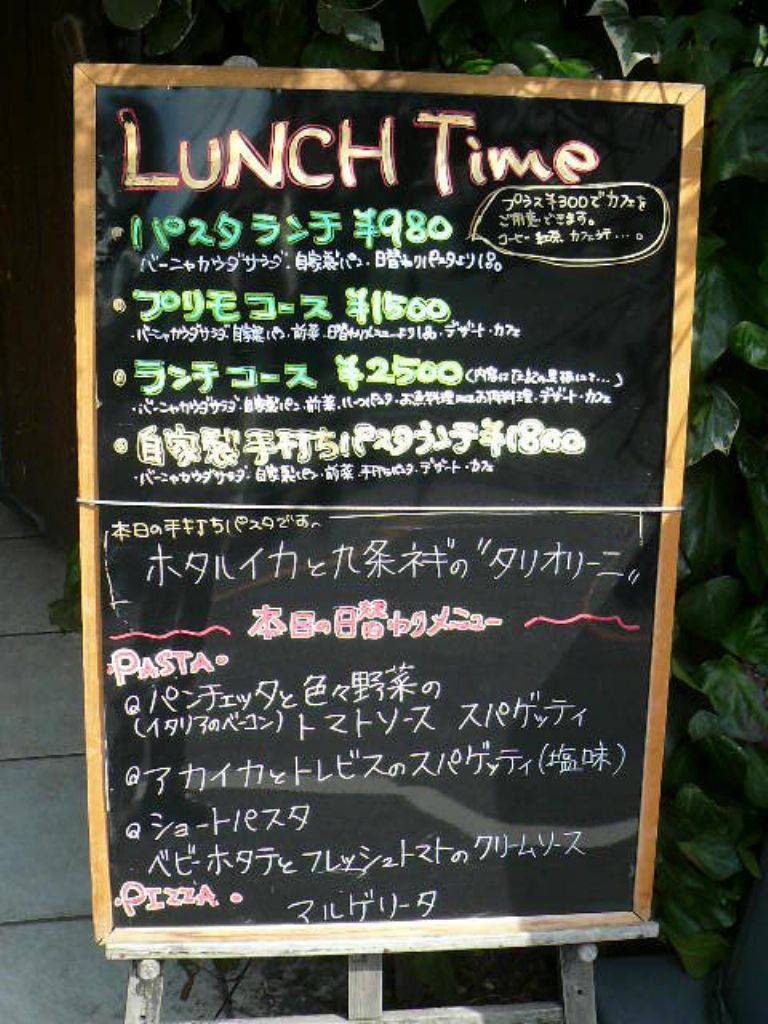 LUNCH Time
プラス¥300でカフェを
ご用意できます。
コーヒー 紅茶 カフェラテ....。
パスタランチ ¥980
バーニャカウダサラダ・自家製パン・日替わりパスタより1品
プリモコース ¥1500
・バーニャカウダサラダ・自家製パン・前菜・日替わりメニューより1品・デザート・カフェ
ランチコース ¥2500(内容は左記の
・バーニャカウダサラダ・自家製パン・前菜・ハーフパスタ・お魚料理 お肉料理・デザート・カフェ
自家製手打ちパスタランチ¥1800
・バーニャカウダサラダ・自家製パン・前菜・手打ちパスタ・デザート・カフェ
本日の手打ちパスタです。
ホタルイカと九条ネギの"タリオリーニ"
本日の日替わりメニュー
PASTA
パンチェッタと色々野菜の
(イタリアのベーコン)トマトソース スパゲッティ
アカイカとトレビスのスパゲッティ(塩味)
ショートパスタ
ベビーホタテとフレッシュトマトのクリームソース
PIZZA
マルゲリータ